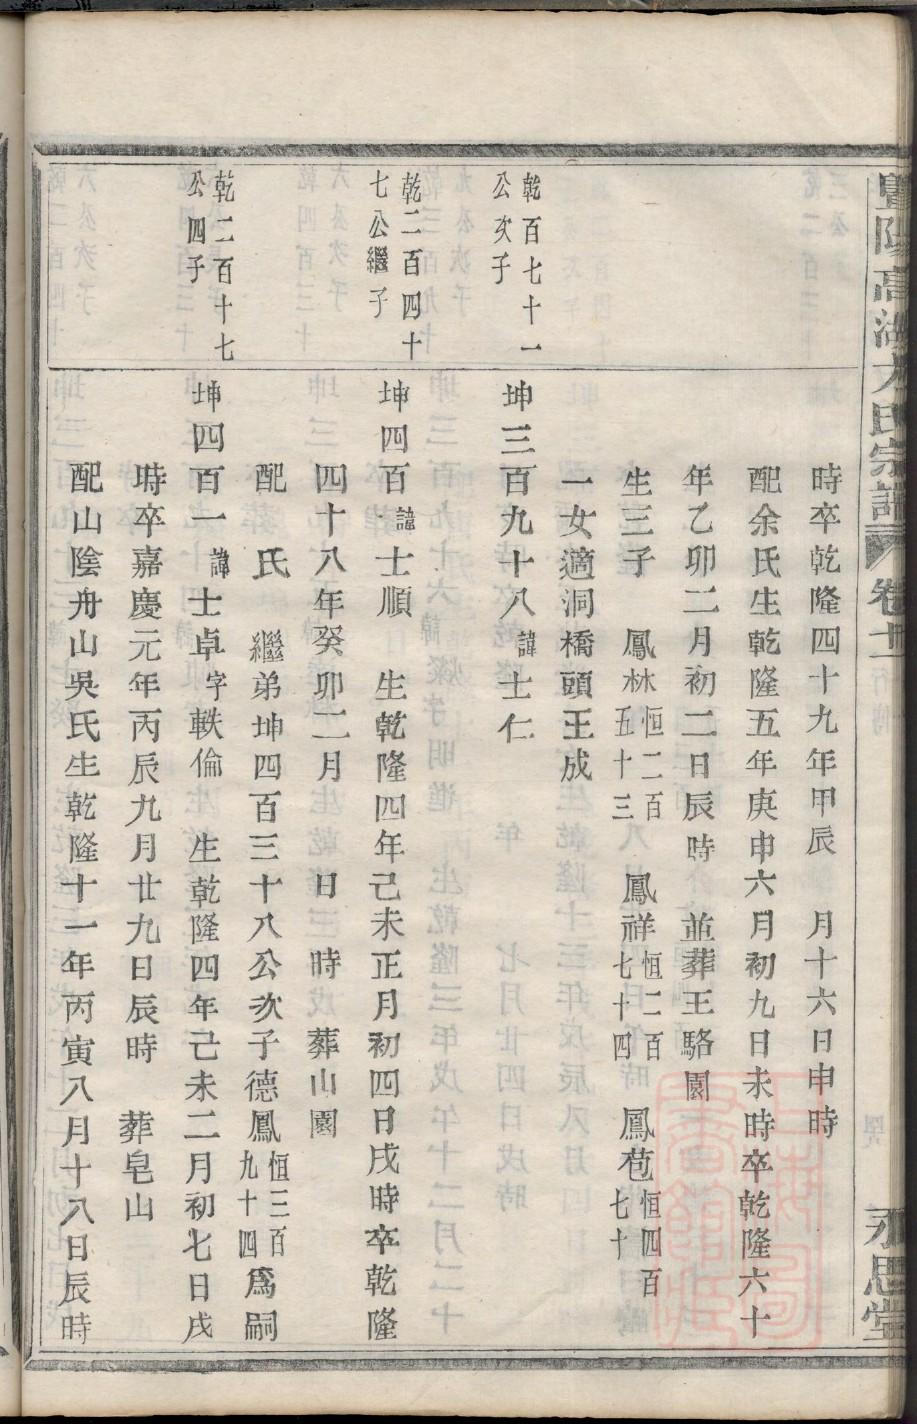 暨陽高湖方氏宗譜 卷十二 永思堂
時卒乾隆四十九年甲辰 月十六日申時
配余氏生乾隆五年庚申六月初九日未時卒乾隆六十
年乙卯二月初二日辰時 並葬王駱園
生三子 鳳林恒二百五十三 鳳祥恒二百七十四 鳳苞恒四百七十
一女適洞橋頭王成
乾百七十一公次子
坤三百九十八諱士仁
乾二百四十七公繼子
坤四百諱士順 生乾隆四年己未正月初四日戌時卒乾隆
四十八年癸卯二月 日 時 葬山園
配 氏 繼弟坤四百三十八公次子德鳳恒三百九十四為嗣
乾二百十七公四子
坤四百一諱士卓字軼倫 生乾隆四年己未二月初七日戌
時卒嘉慶元年丙辰九月廿九日辰時 葬皂山
配山陰舟山吳氏生乾隆十一年丙寅八月十八日辰時